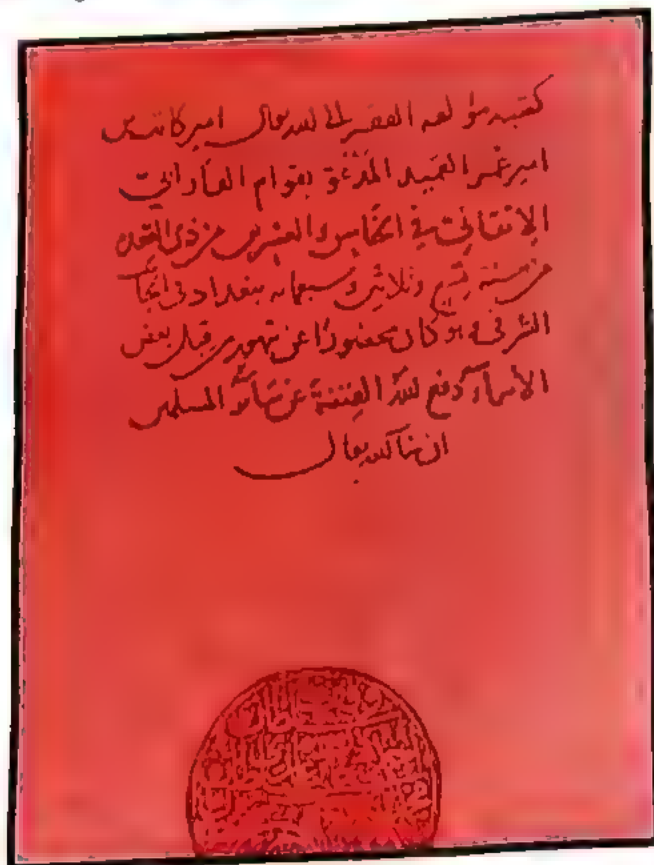 كتبه مؤلفه الفقير الى الله تعالى امير كاتب بن
امير عمر العميد المدعو بقوام الفارابي
الإتقاني في الخامس والعشرين من ذي القعدة
من سنة تسع وثلاثين وسبعمائة ببغداد في الجانب
الشرقي وهو كان محصورًا عن شهر من قبل بعض
الأمراء دفع الله الفتنة عن سائر المسلمين
ان شاء الله تعالى